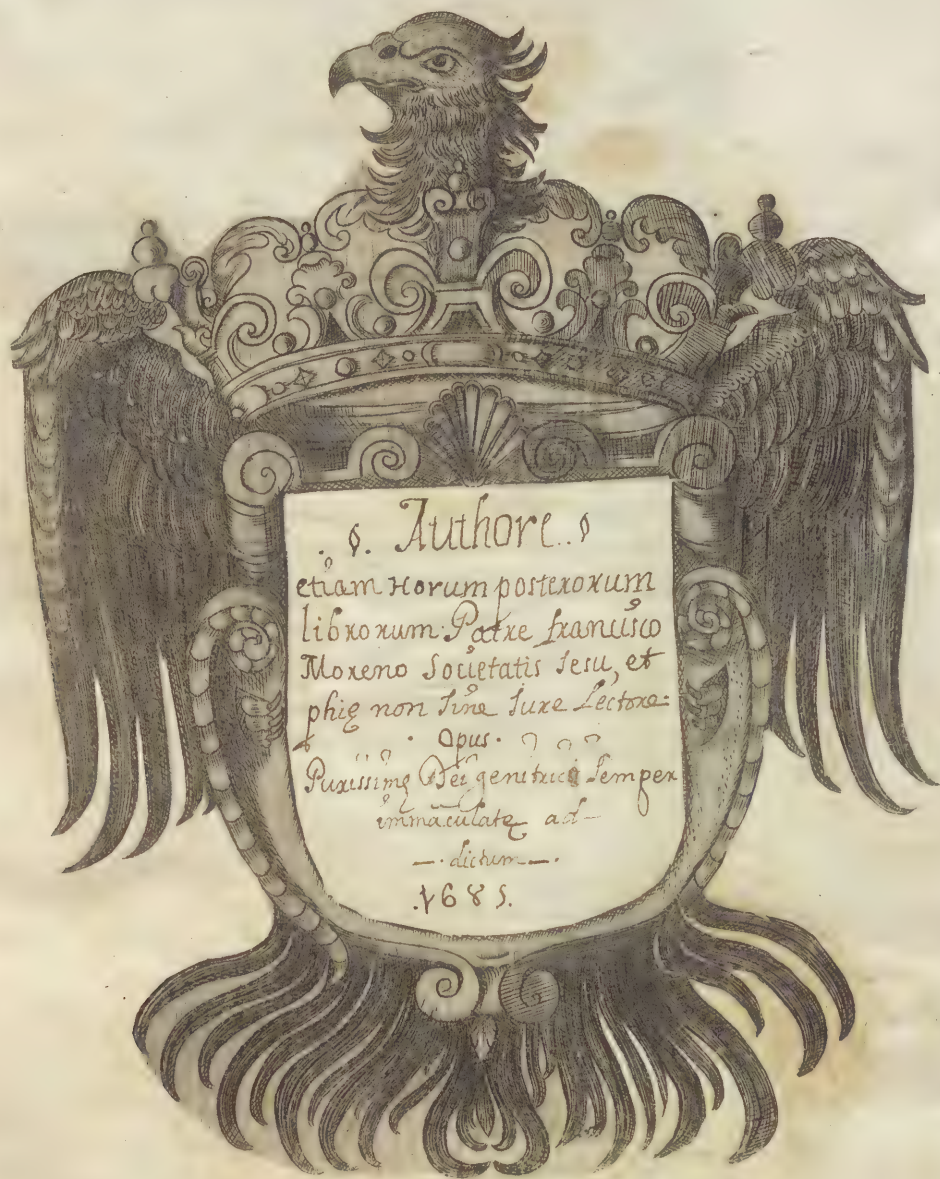 . §. Authore..§
etiam Horum posterorum
librorum Patre francisco
Moreno Societatis Jesu, et
phię non sine Iure Lectore
· Opus ·
Purissimę Dei genitrici semper
immaculatę ad-
—·dictum—.
.1685.